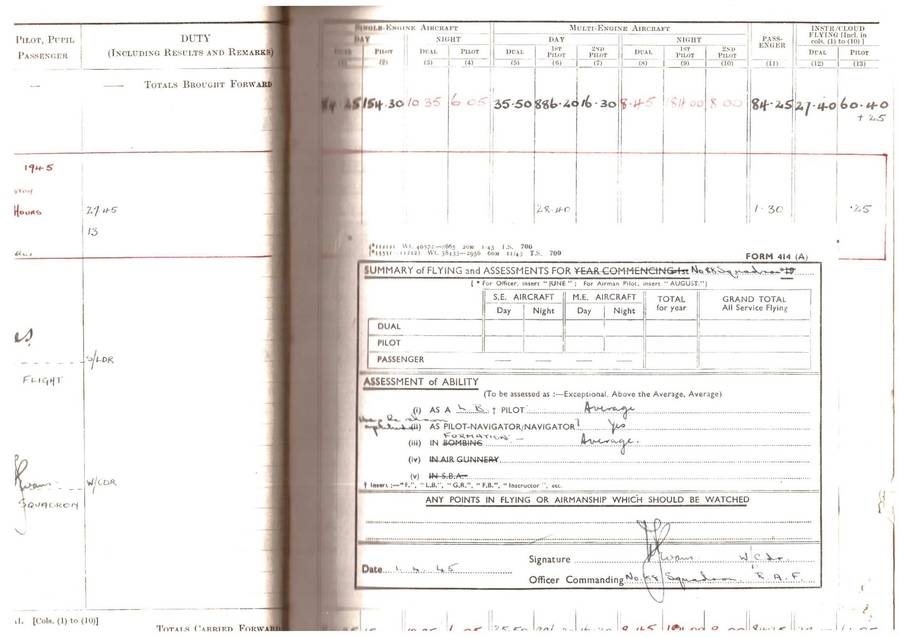 PILOT, PUPIL
PASSENGER
DUTY
(INCLUDING RESULTS AND REMARKS)
— —— TOTALS BROUGHT FORWARD
1945
HOURS 27.45
13
S/LDR
FLIGHT
W/CDR
SQUADRON
[Cols. (1) to (10)]
TOTALS CARRIED FORWARD
SINGLE-ENGINE AIRCRAFT MULTI-ENGINE AIRCRAFT PASS-ENGER INSTR/CLOUD FLYING [Incl. in cols. (1) to (10)]
DAY NIGHT DAY NIGHT
DUAL PILOT DUAL PILOT DUAL 1ST PILOT 2ND PILOT DUAL 1ST PILOT 2ND PILOT DUAL PILOT
(1) (2) (3) (4) (5) (6) (7) (8) (9) (10) (11) (12) (13)
84.25 154.30 10 35 6 05 35.50 886.20 16.30 8.45 184 00 8 00 84.25 27.40 60.40
+ 25
28.40 1.30 .25
FORM 414 (A)
SUMMARY of FLYING and ASSESSMENTS FOR YEAR COMMENCING 1st No 88 Squadron *19
[* For Officer, insert "JUNE"; For Airman Pilot, insert "AUGUST."]
S.E. AIRCRAFT M.E. AIRCRAFT TOTAL for year GRAND TOTAL All Service Flying
Day Night Day Night
DUAL
PILOT
PASSENGER — — — —
ASSESSMENT of ABILITY
(To be assessed as :—Exceptional, Above the Average, Average)
(i) AS A L.B. † PILOT Average
(ii) AS PILOT-NAVIGATOR/NAVIGATOR Yes
FORMATION
(iii) IN BOMBING Average.
(iv) IN AIR GUNNERY
(v) IN S.B.A.
† Insert :—"F.", "L.B.", "G.R.", "F.B.", "Instructor", etc.
ANY POINTS IN FLYING OR AIRMANSHIP WHICH SHOULD BE WATCHED
Signature W/Cdr
Date 1. 4. 45
Officer Commanding No. 88 Squadron R.A.F.